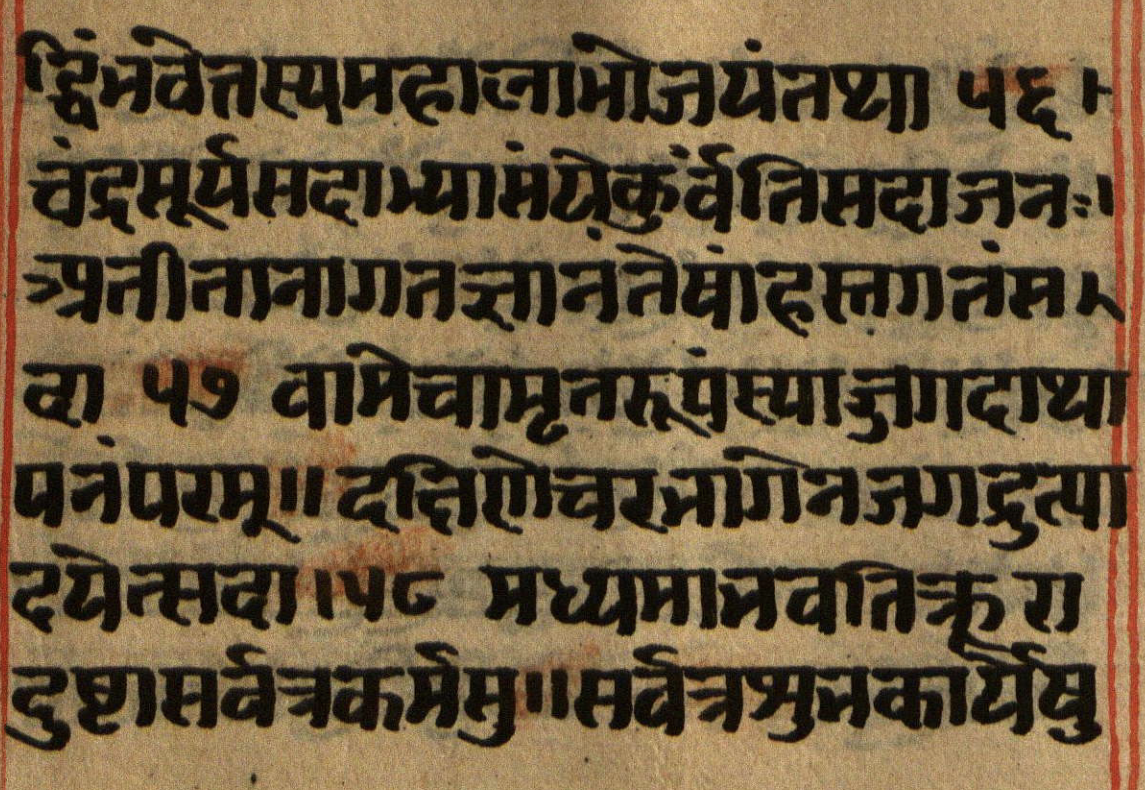 द्धिंभवेत्तस्यमहालाभोजयंतथा ५६ ।
चंद्रसूर्यसदाभ्यासंयेकुर्वंतिसदाजनः।
अतीतानागतज्ञानंतेषांहस्तगतंस
दा ५७ वामेचामृतरूपंस्याज्जगदाथा
पनंपरम्॥दक्षिणेचरभागेनजगदुत्पा
दयेत्सदा।५८ मध्यमाभवतिक्रूरा
दुष्टासर्वत्रकर्मसु॥सर्वत्रशुभकार्येषु